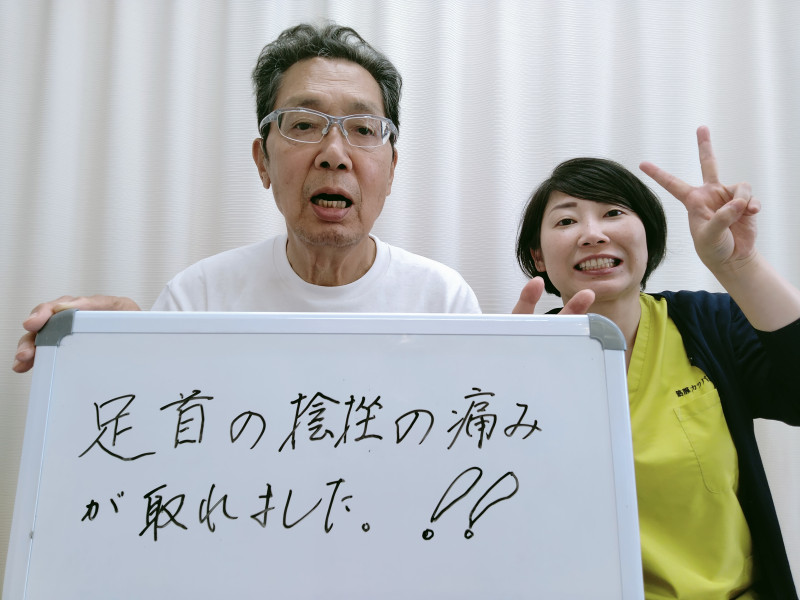 足首の捻挫の痛み
が取れました。!!